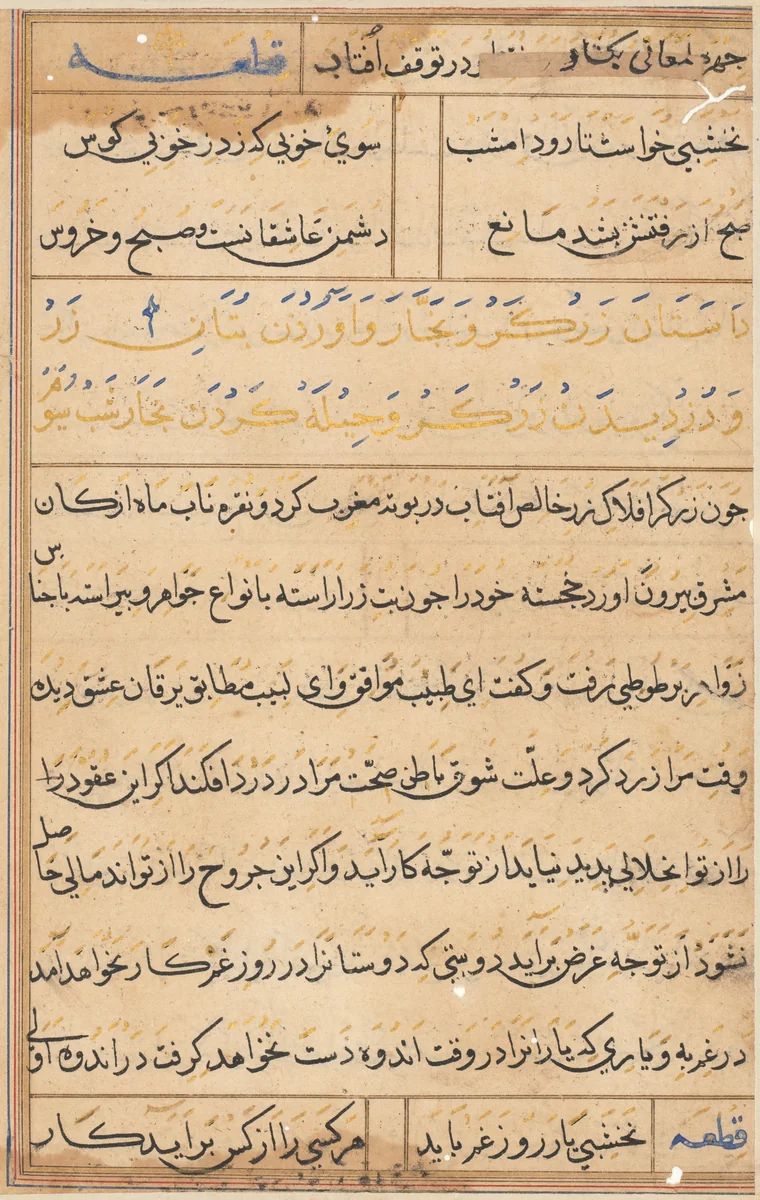 چهره لمعانی بکشاد در توقف آفتاب قطعه
نخشبی خواست تا رود امشب سوی خوبی که زد ز خوبی کوس
صبح از رفتنش بشد مانع دشمن عاشقانست و صبح و خروس
داستان زرکر و نجار و آوردن بتان زر
و دزدیدن زرکر و حیله کردن نجار شب سوم
جون زرکر افلاک زر خالص آفتاب در بوته مغرب کرد و نقره ناب ماه از کان
مشرق بیرون اورد خجسته خود را جون بت زر اراسته بانواع جواهر و بیراسته باجناس
زواهر بر طوطی رفت و کفت ای طبیب موافق وای لبیب مطابق یرقان عشق دیده
وقت مرا زرد کرد و علّت شوق باطن صحّت مرا در درد افکند اکر این عقود را
را از تو انحلالی پدید نیاید از توجّه کار آید و اکر این جروح را از تو اندمالی حاصل
نشود از توجّه غرض براید دوستی که دوستانرا در روز غم کار نخواهد آمد
در غم به و یاری که یارانرا در وقت اندوه دست نخواهد کرفت در اندوه اولی
قطعه نخشبی یار روز غم باید هر کسی را از کس براید کار